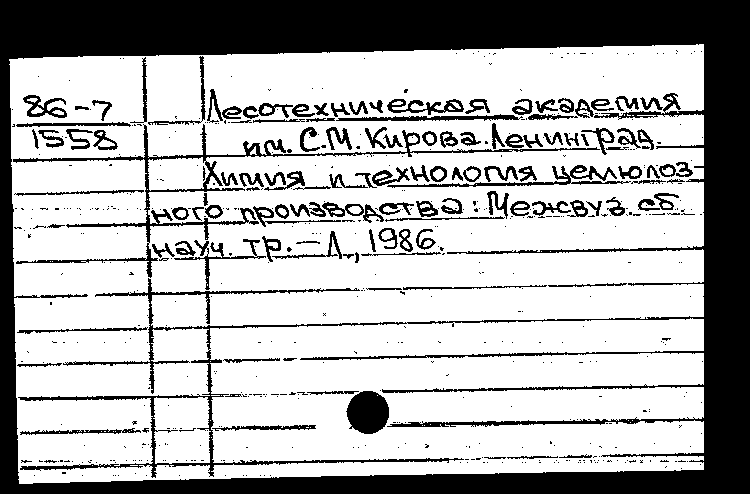 86-7
1558
Лесотехническая академия
им. С.М. Кирова. Ленинград.
Химия и технология целлюлоз-
ного производства: Межвуз. сб.
науч. тр. – Л., 1986.